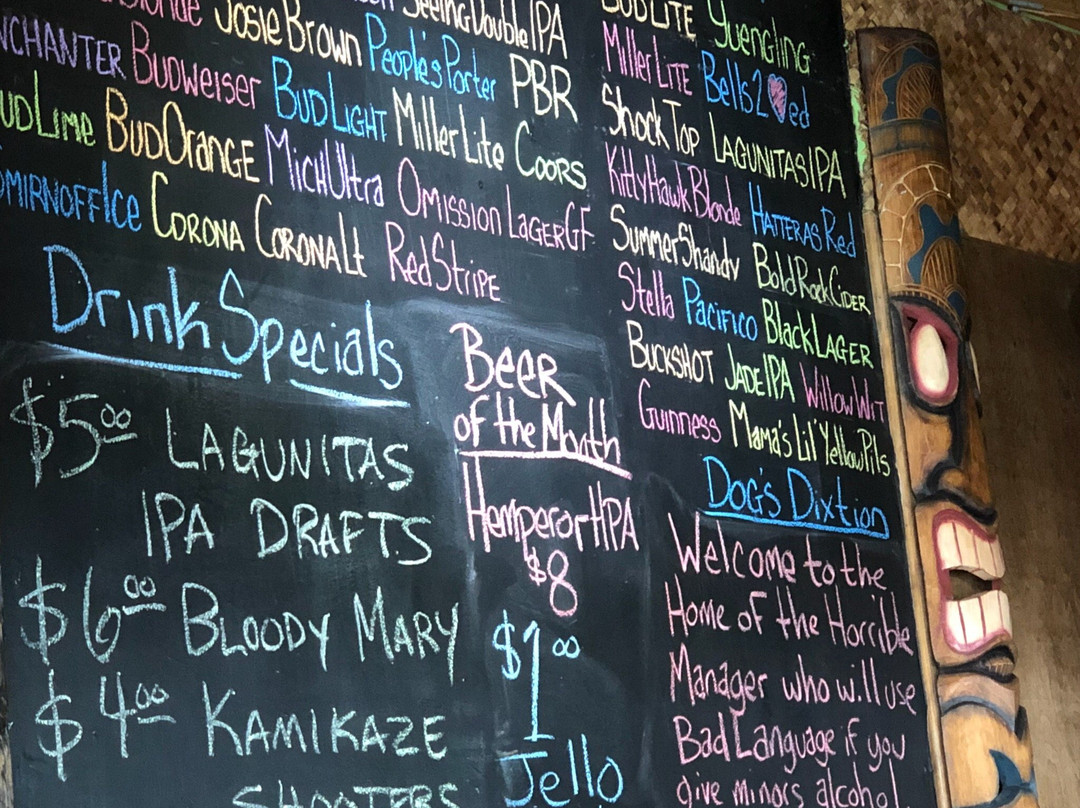 Blonde Josie Brown SeeingDoubleIPA
NCHANTER Budweiser People's Porter PBR
UDLime BudOrange BudLight Miller Lite Coors
SMIRNOFF Ice Corona CoronaLt MichUltra Omission LagerGF
RedStripe
BUDLITE Yuengling
Miller LITE Bells 2 ed
Shock Top LAGUNITAS IPA
KittyHawk Blonde HATTERAS Red
SummerShandy BoldRock CIDER
Stella Pacifico Black LAGER
BUCKSHOT JADE IPA Willow Wit
Guinness Mama's Lil' Yellow Pils
Drink Specials
$5.00 LAGUNITAS
IPA DRAFTS
$6.00 BLOODY MARY
$4.00 KAMIKAZE
SHOOTERS
Beer
of the Month
Hemperor HPA
$8
$1.00
Jello
Dog's Dixtion
Welcome to the
Home of the Horrible
Manager who will use
Bad Language if you
give minors alcohol